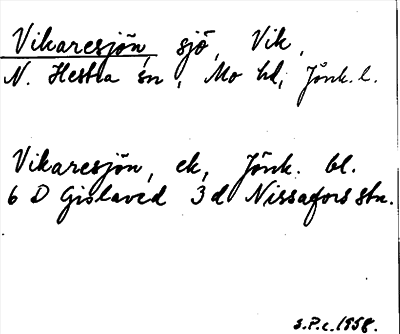 Vikaresjön, sjö, Vik,
N. Hestra sn, Mo hd, Jönk. l.
Vikaresjön, ek, Jönk. bl.
6 D Gislaved 3 d Nissafors stn.
S.P.c. 1958.